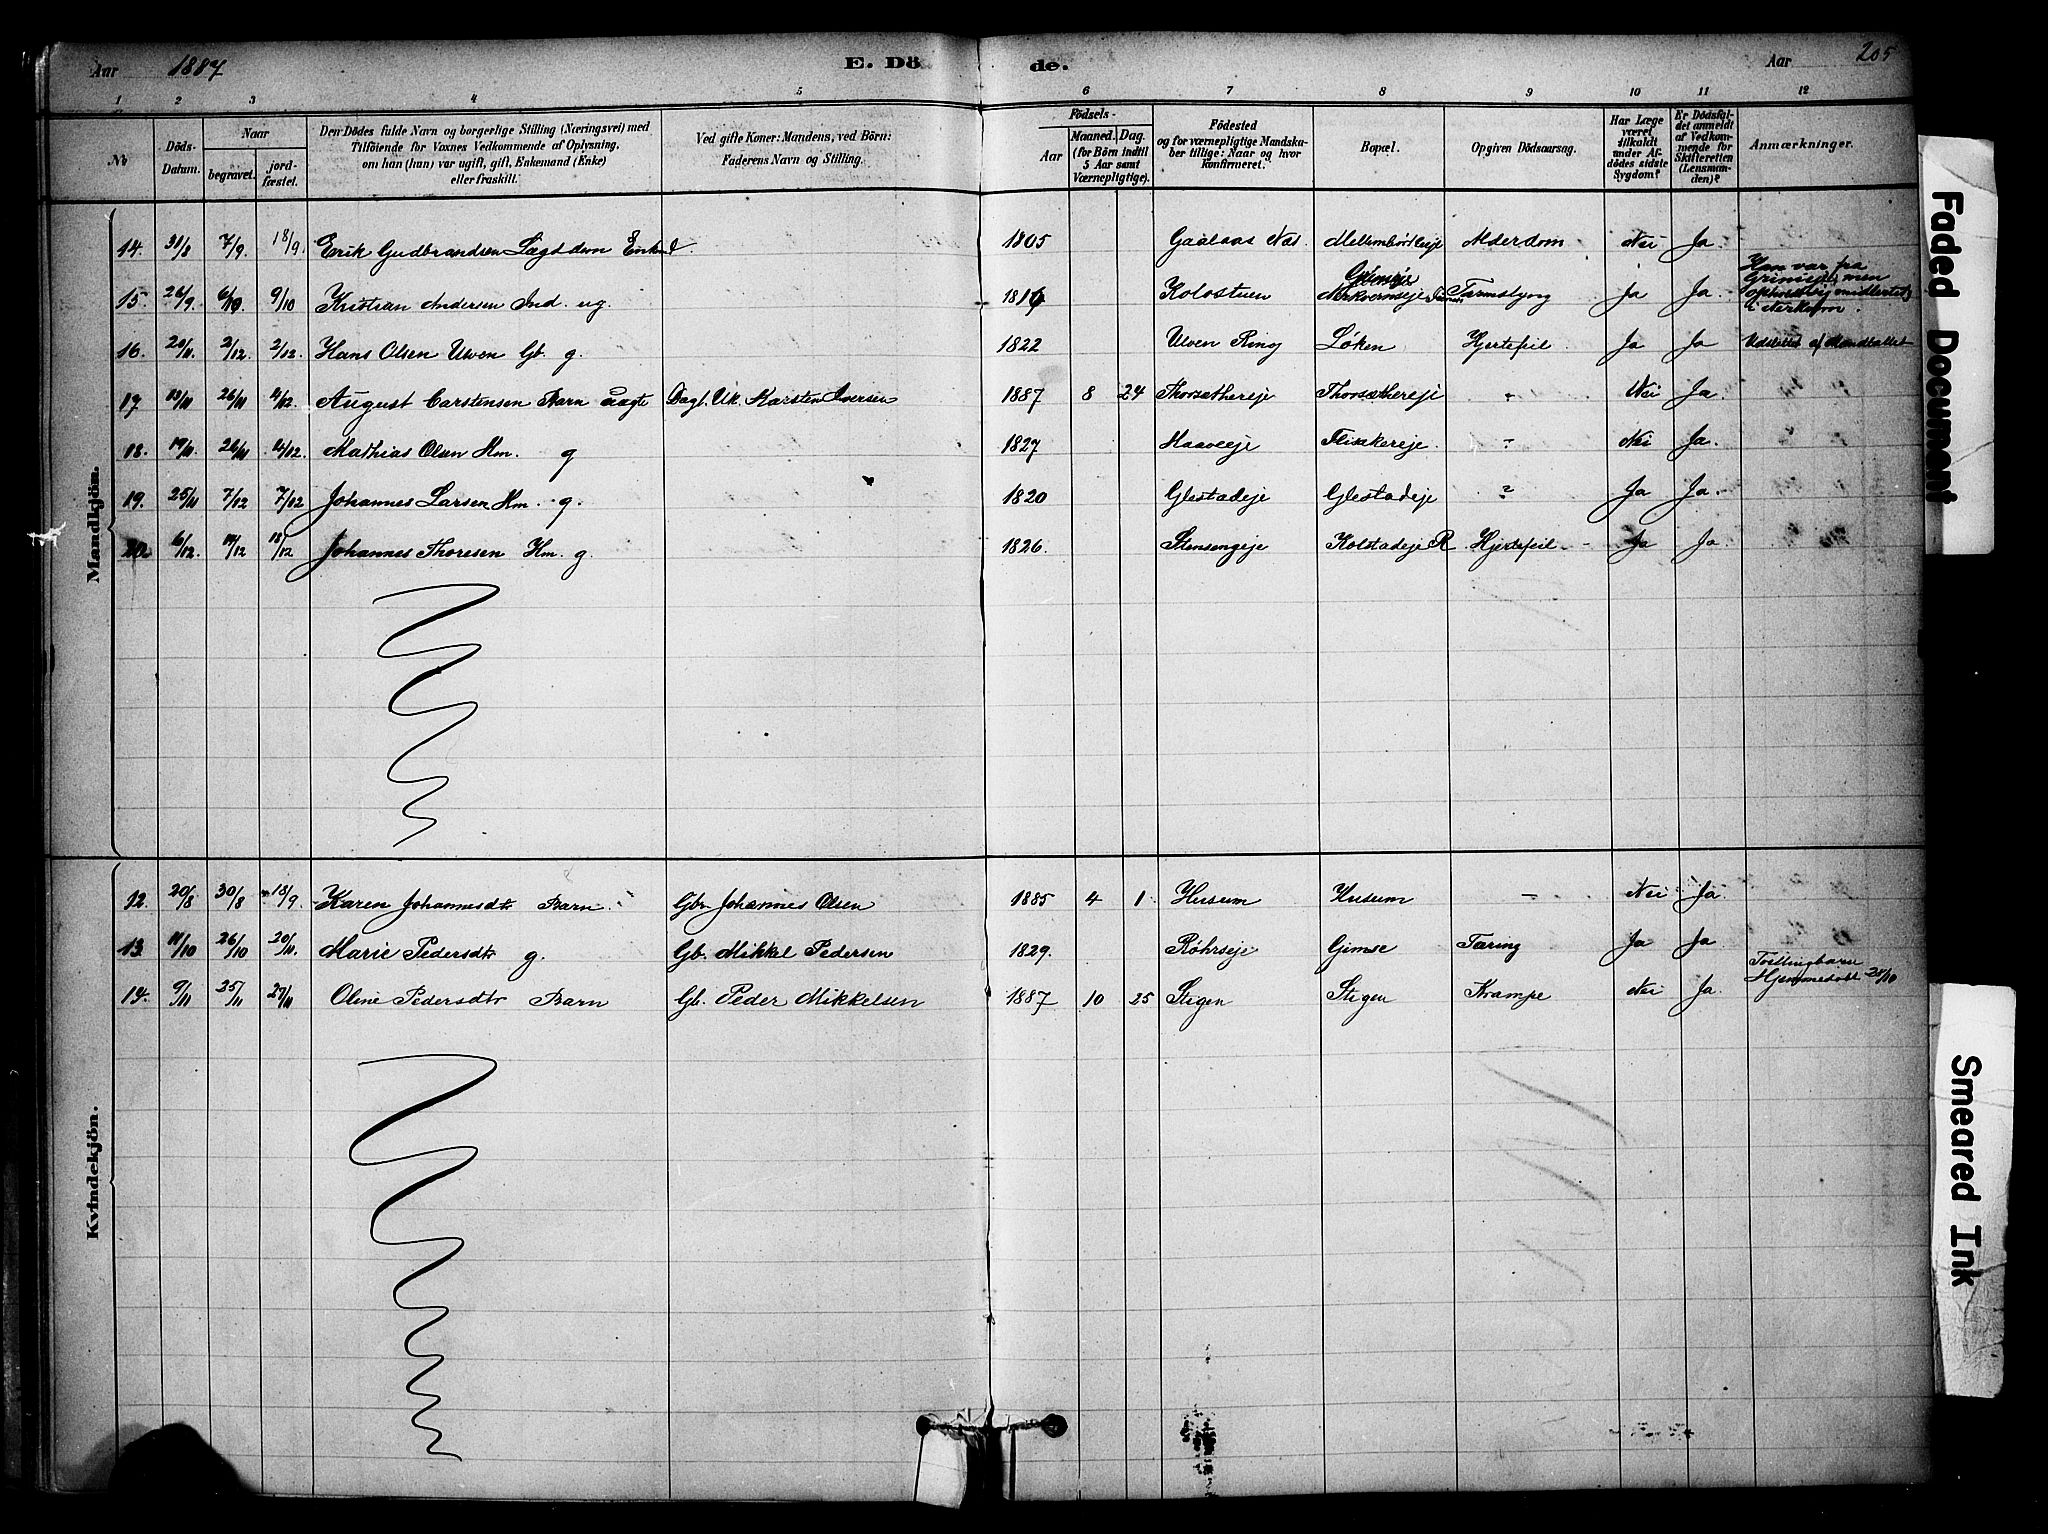 Aar 1887 E. Dö de. Aar 205
1 2 3 4 5 6 7 8 9 10 11 12
No
Döds-Datum.
Naar
begravet.
jord-fæstet.
Den Dödes fulde Navn og borgerlige Stilling (Næringsvei) med
Tilföiende for Voxnes Vedkommende af Oplysning,
om han (hun) var ugift, gift, Enkemand (Enke)
eller fraskilt.
Ved gifte Koner: Mandens, ved Börn:
Faderens Navn og Stilling.
Födsels-
Aar
Maaned. Dag.
(for Börn indtil
5 Aar samt
Værnepligtige).
Födested
og for værnepligtige Mandska-
ber tillige: Naar og hvor
konfirmeret.
Bopæl.
Opgiven Dödsaarsag.
Har Læge
været
tilkaldt
under Af-
dödes sidste
Sygdom?
Er Dödsfal-
det anmeldt
af Vedkom-
mende for
Skifteretten
(Lensman-
den)?
Anmærkninger.
Mandkjön.
14. 31/8 7/9 18/9 Erik Gudbrandsen Enkm 1805 Gaalaas Næs. Alderdom Nei Ja
15. 26/9 6/10 9/10 Kristian Andersen Ind. ug. Kolostuen Ja Ja. Han var fra
men
16. 20/11 2/12. 2/12. Hans Olsen Ulven Gb. g. 1822 Ulven Ring Løken Hjertefeil Ja Ja Udslettet af Mandtallet
17 13/11 26/11 4/12. August Carstensen Barn uægte Karsten Iversen 1887 8 24 Thorsæthereje Thorsæthereje - Nei Ja.
18. 19/11. 26/11 4/12. Mathias Olsen Hm. g 1827 Haaveeje Flikkereje. - Nei Ja.
19. 25/11 7/12 7/12 Johannes Larsen Hm. g. 1820 Glestadeje Glestadeje ? Ja Ja.
20. 6/12. 14/12 18/12 Johannes Thoresen Hm. g. 1826. Stensengeje Kolstadeje R. Hjertefeil Ja Ja
Kvindekjön.
12. 20/8 30/8 18/9 Karen Johannesdtr Barn. Gbr Johannes Olsen 1885 4 1 Husum Husum - Nei Ja.
13. 11/10 26/10 20/11. Marie Pedersdtr g. Gb. Mikkel Pedersen 1829. Røhrseje Gimse Tæring Ja Ja
14. 9/11 25/11 27/11 Oline Pedersdtr Barn Gb. Peder Mikkelsen 1887 10 25 Stigen Stigen Krampe Nei Ja. Tvillingbarn
Hjemmedøbt 25/10
Faded Document
Smeared Ink